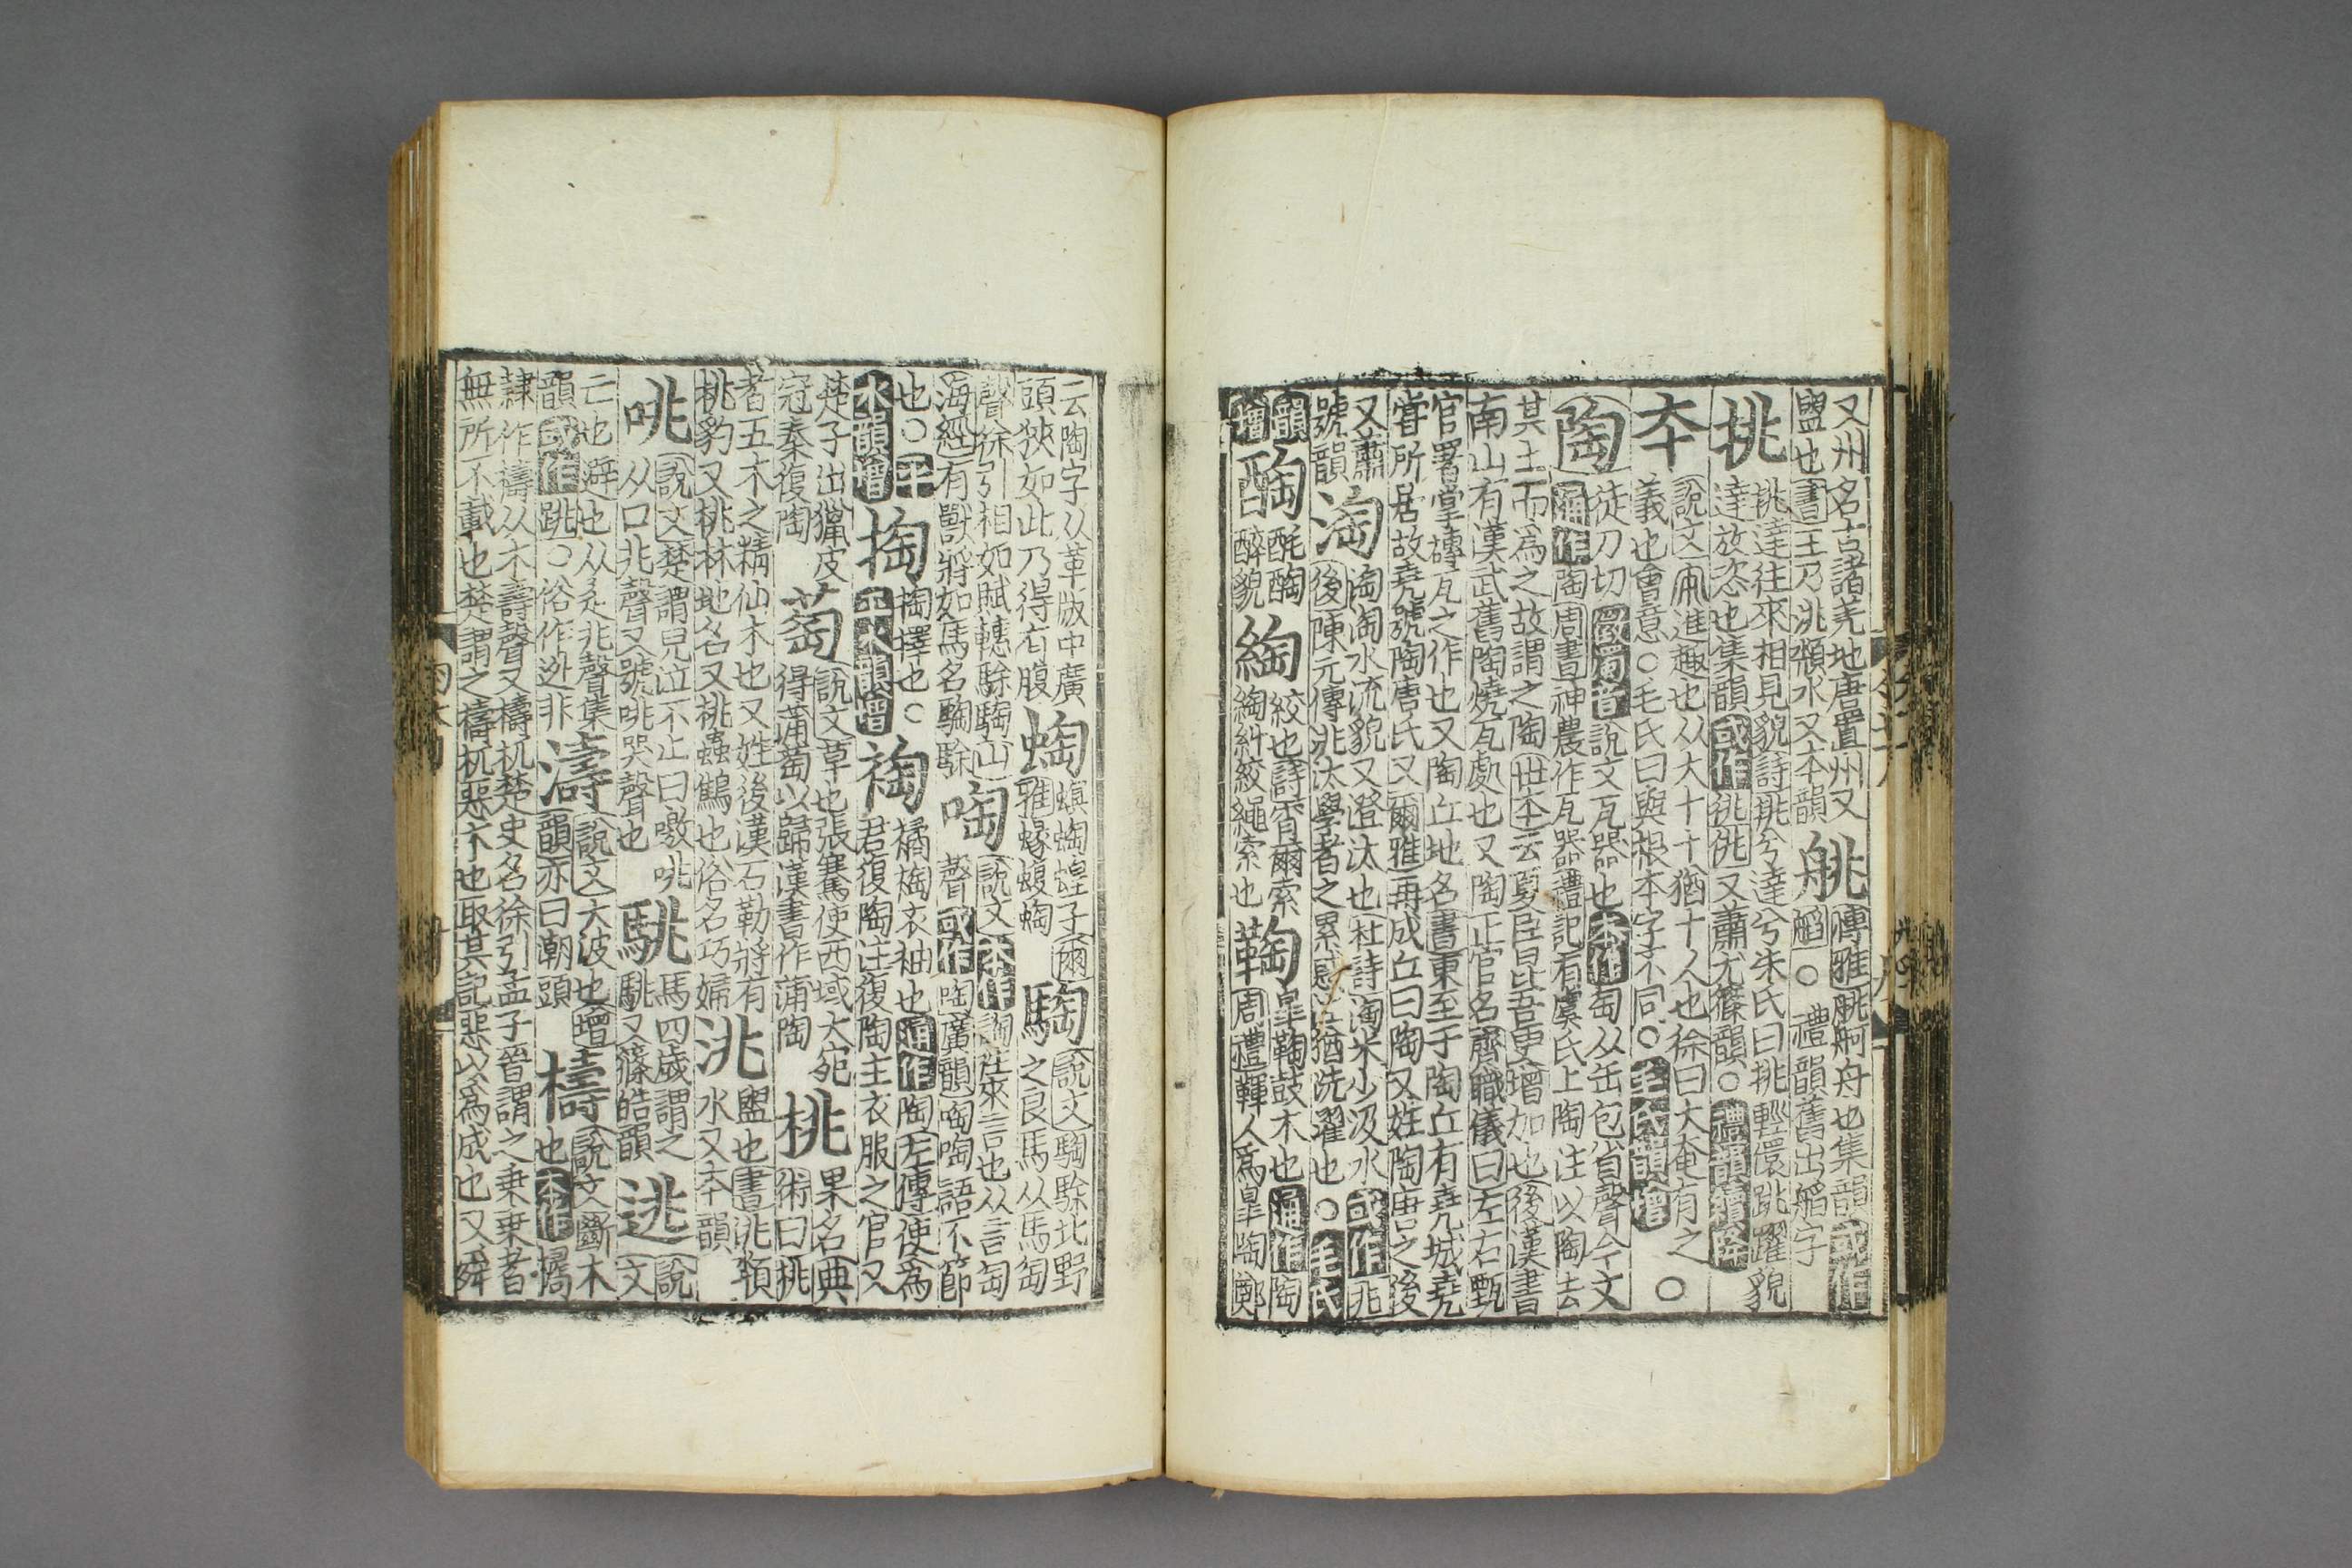 又州名古諸羌地唐置州又
盥也書王乃洮頮水又本韻
博雅
舸舟也集韻或作
○禮韻舊出
字
挑
挑達往來相見貌詩挑兮達兮朱氏曰挑輕儇跳躍貌
達放恣也集韻或作
又蕭尤篠韻○禮韻續降
夲
說文夲進趣也从大十十猶十人也徐曰大奄有之○
義也會意○毛氏曰與根本字不同○毛氏韻增
陶
徒刀切徵濁音說文瓦器也本作匋从缶包省聲今文
通作陶周書神農作瓦器禮記有虞氏上陶注以陶去
其土而為之故謂之陶世本云夏臣昆吾更增加也後漢書
南山有漢武舊陶燒瓦處也又陶正官名齊職儀曰左右甄
官署掌磚瓦之作也又陶丘地名書東至于陶丘有堯城堯
甞所居故堯號陶唐氏又爾雅再成丘曰陶又姓陶唐之後
又蕭
號韻
淘
淘淘水流貌又澄汰也杜詩淘米少汲水或作洮
後陳元傳洮汰學者之累惑注猶洗濯也○毛氏
韻
增
醄
酕醄
醉貌
綯
絞也詩宵爾索
綯糾絞繩索也
鞠
皐鞠鼓木也通作陶
周禮韗人為皐陶鄭
云陶字从革版中廣
頭狹如此乃得有腹
蜪
蝝蜪蝗子爾
雅蝝蝮蜪
騊
說文騊駼北野
之良馬从馬匋
聲徐引相如賦轊駼騊山
海經有獸將如馬名騊駼
啕
說文本作詾往來言也从言匋
聲或作啕廣韻啕啕語不節
也○平
水韻增
掏
掏擇也○
平水韻增
裪
橘裪衣袖也通作陶左傳使為
君復陶注復陶主衣服之官又
楚子出獵皮
冠秦復陶
萄
說文草也張騫使西域大宛
得蒲萄以歸漢書作蒲陶
桃
果名典
術曰桃
者五木之精仙木也又姓後漢石勒將有
桃豹又桃林地名又桃蟲鷦也俗名巧婦
洮
盥也書洮頮
水又本韻
咷
說文楚謂兒泣不止曰噭咷
从口兆聲又號咷哭聲也
駣
馬四歲謂之
駣又篠皓韻
逃
說
文
亡也避也从辵兆聲集
韻或作跳○俗作迯非
濤
說文大波也增
韻亦曰潮頭
檮
說文斷木
也本作㯿
隷作檮从木壽聲又檮杌楚史名徐引孟子晉謂之乗乗者
無所不載也楚謂之檮杌惡木也取其記惡以為戒也又舜